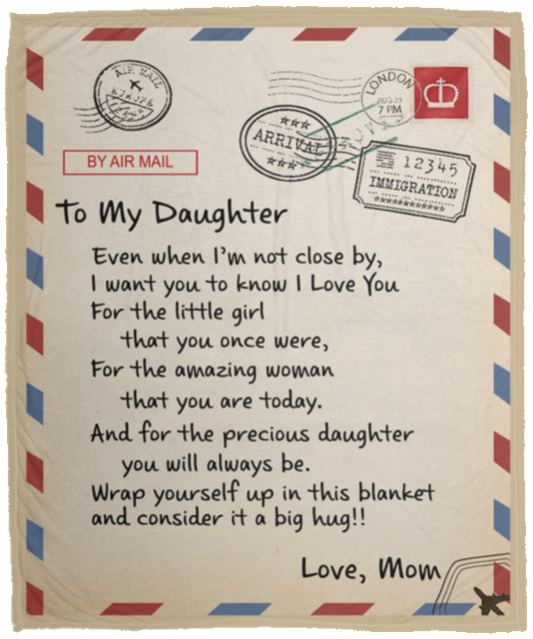 AIR MAIL
LONDON
7 PM
ARRIVAL
12345
IMMIGRATION
BY AIR MAIL
To My Daughter
Even when I'm not close by,
I want you to know I Love You
For the little girl
that you once were,
For the amazing woman
that you are today.
And for the precious daughter
you will always be.
Wrap yourself up in this blanket
and consider it a big hug!!
Love, Mom